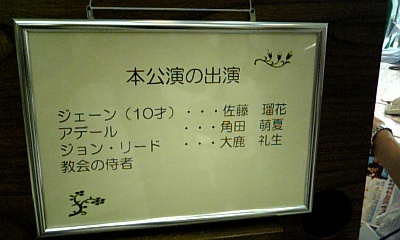 本公演の出演
ジェーン（10才）・・・佐藤　瑠花
アデール　　　　・・・角田　萌夏
ジョン・リード　・・・大鹿　礼生
教会の侍者